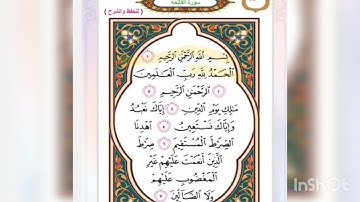 سورة الفاتحة
( للحفظ والشرح )
بِسْمِ ٱللَّهِ ٱلرَّحْمَٰنِ ٱلرَّحِيمِ ١
ٱلْحَمْدُ لِلَّهِ رَبِّ ٱلْعَٰلَمِينَ
٢ ٱلرَّحْمَٰنِ ٱلرَّحِيمِ ٣
مَٰلِكِ يَوْمِ ٱلدِّينِ ٤ إِيَّاكَ نَعْبُدُ
وَإِيَّاكَ نَسْتَعِينُ ٥ ٱهْدِنَا
ٱلصِّرَٰطَ ٱلْمُسْتَقِيمَ ٦ صِرَٰطَ
ٱلَّذِينَ أَنْعَمْتَ عَلَيْهِمْ غَيْرِ
ٱلْمَغْضُوبِ عَلَيْهِمْ
وَلَا ٱلضَّآلِّينَ ٧
InShOt